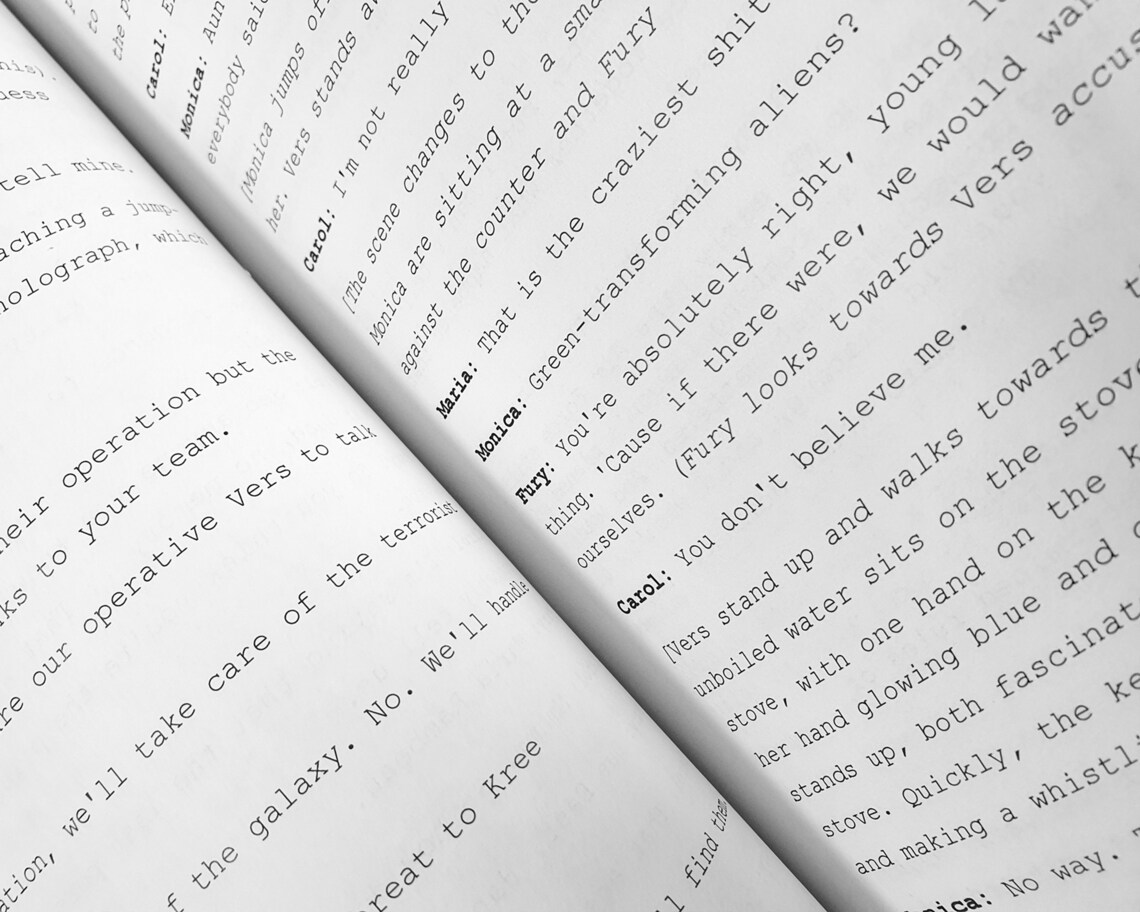 tell mine.
aching a jump-
holograph, which
their operation but the
ks to your team.
re our operative Vers to talk
ation, we'll take care of the terrorist
f the galaxy. No. We'll handle
reat to Kree
l find them
to
the p
Carol: E
Monica: Aun
everybody said
[Monica jumps of
her. Vers stands a
Carol: I'm not really
[The scene changes to the
Monica are sitting at a sma
against the counter and Fury
Maria: That is the craziest shit
Monica: Green-transforming aliens?
Fury: You're absolutely right, young l
thing. 'Cause if there were, we would wan
ourselves. (Fury looks towards Vers accus
Carol: You don't believe me.
[Vers stand up and walks towards t
unboiled water sits on the stove
stove, with one hand on the k
her hand glowing blue and
stands up, both fascinat
stove. Quickly, the ke
and making a whistli
nica: No way.